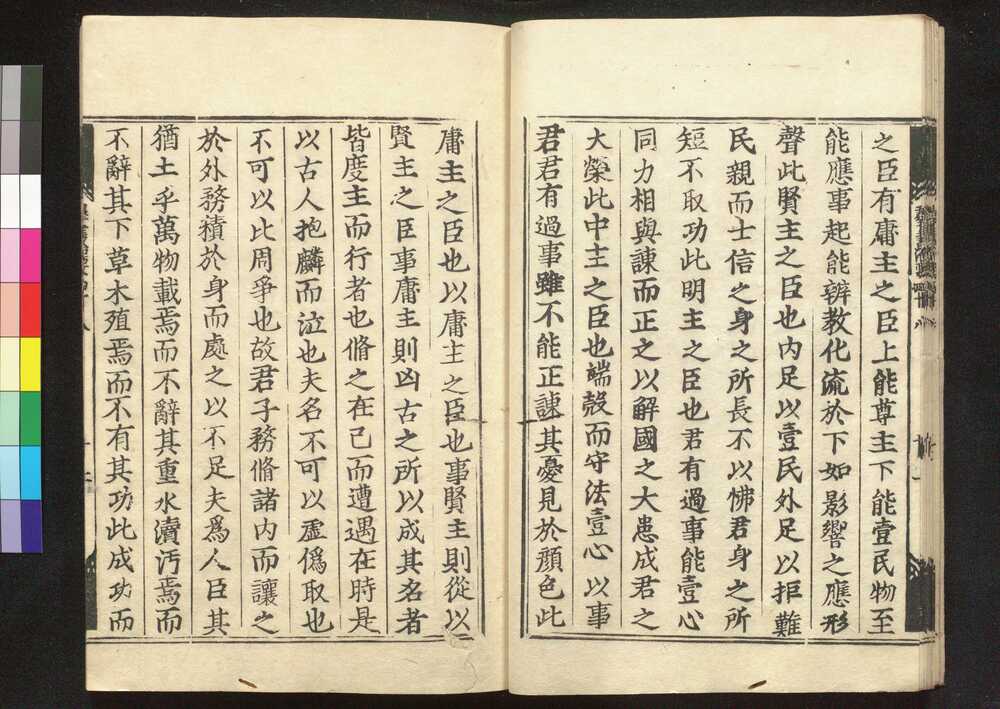 之臣有庸主之臣上能尊主下能壹民物至
能應事起能辨教化流於下如影響之應形
聲此賢主之臣也内足以壹民外足以拒難
民親而士信之身之所長不以怫君身之所
短不取功此明主之臣也君有過事能壹心
同力相與諫而正之以解國之大患成君之
大榮此中主之臣也端慤而守法壹心以事
君君有過事雖不能正諫其憂見於顔色此
庸主之臣也以庸主之臣也事賢主則從以
賢主之臣事庸主則凶古之所以成其名者
皆度主而行者也脩之在己而遭遇在時是
以古人抱麟而泣也夫名不可以虚僞取也
不可以比周爭也故君子務脩諸内而讓之
於外務積於身而處之以不足夫爲人臣其
猶土乎萬物載焉而不辭其重水瀆汚焉而
不辭其下草木殖焉而不有其功此成功而